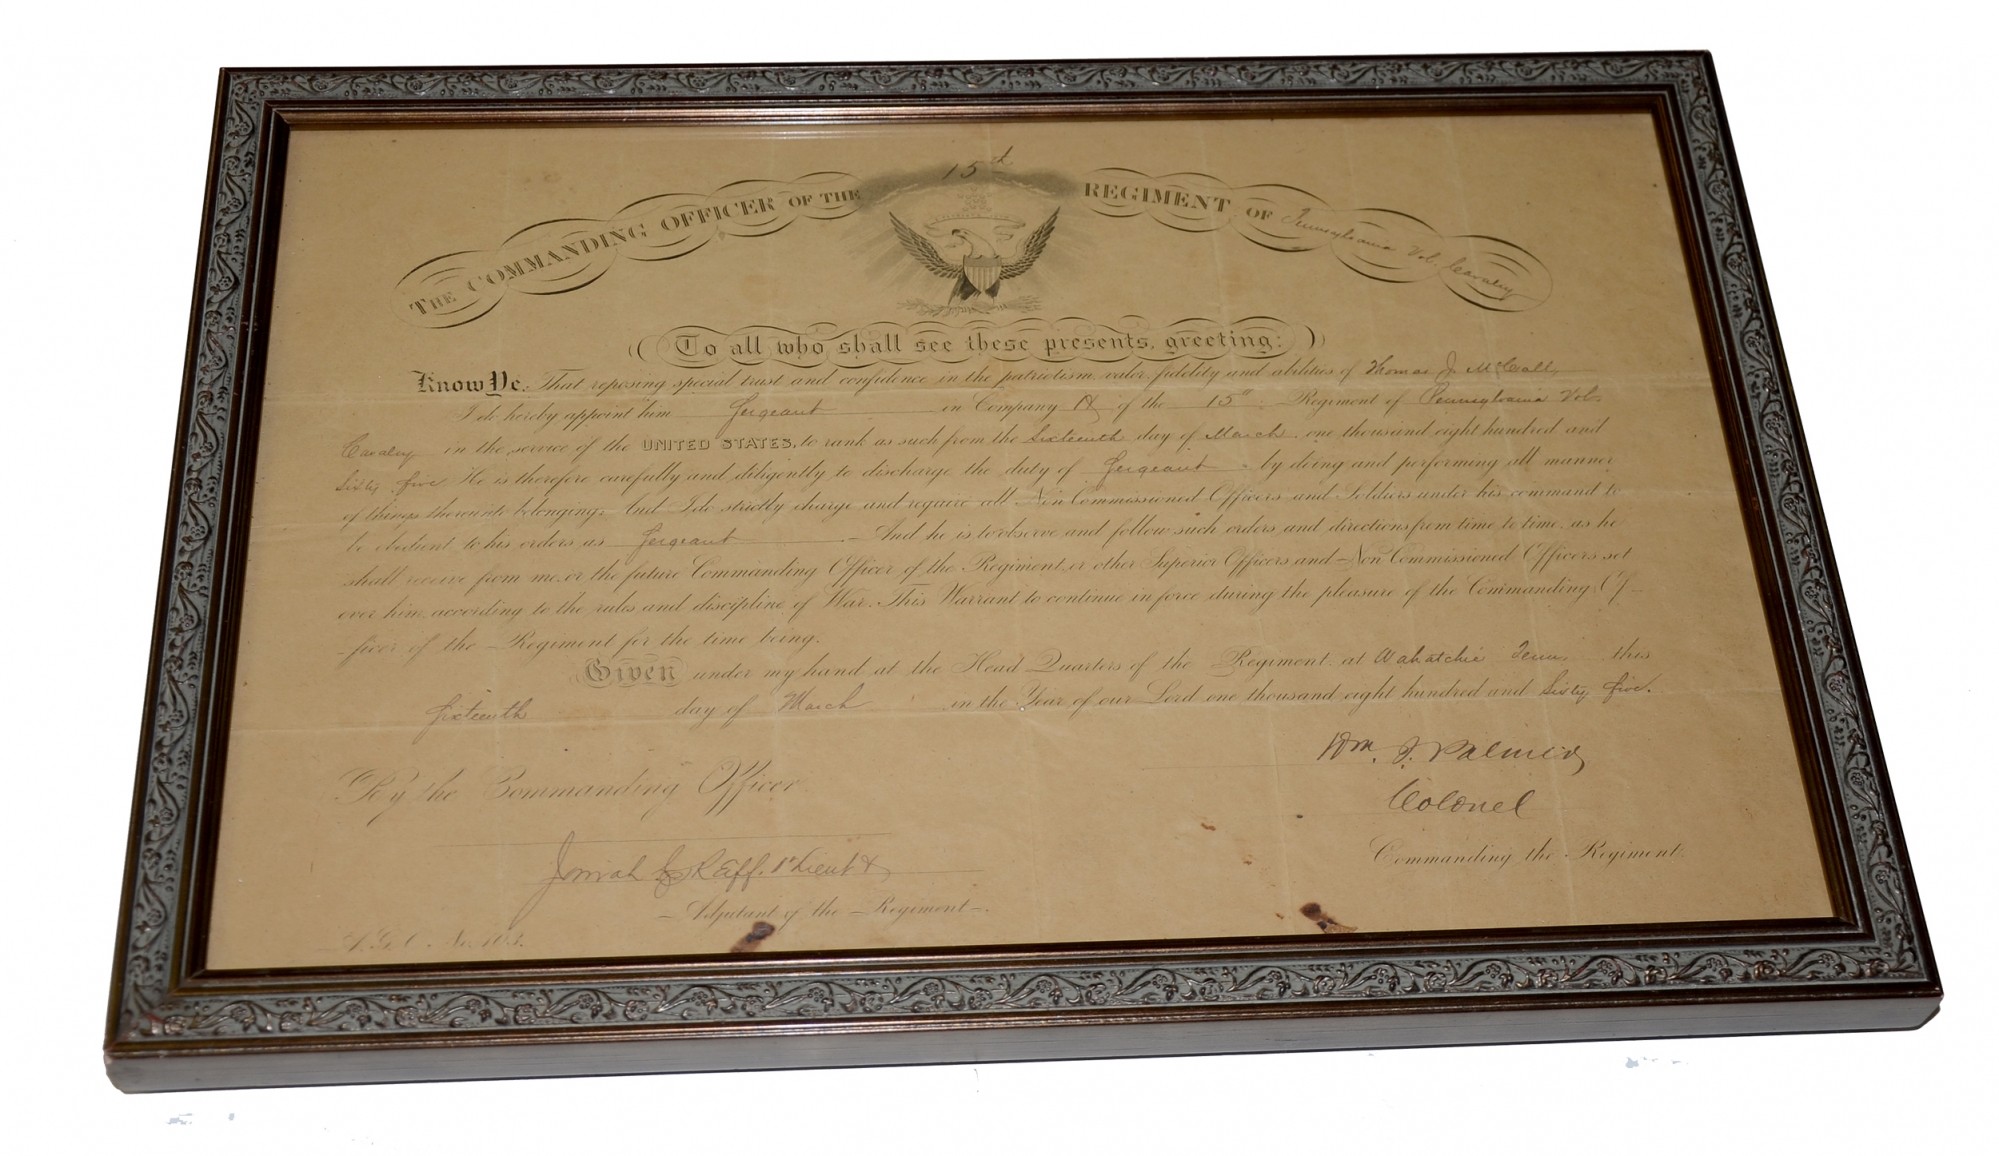 15th
THE COMMANDING OFFICER OF THE REGIMENT OF Pennsylvania Vol. Cavalry
To all who shall see these presents, greeting:
Know Ye, That reposing special trust and confidence in the patriotism, valor, fidelity and abilities of Thomas J. McCall,
I do hereby appoint him Sergeant in Company A of the 15th Regiment of Pennsylvania Vol.
Cavalry in the service of the UNITED STATES, to rank as such from the Sixteenth day of March, one thousand eight hundred and
Sixty five He is therefore carefully and diligently to discharge the duty of Sergeant by doing and performing all manner
of things thereunto belonging. And I do strictly charge and require all Non Commissioned Officers and Soldiers under his command to
be obedient to his orders as Sergeant. And he is to observe and follow such orders and directions from time to time, as he
shall receive from me, or the future Commanding Officer of the Regiment, or other Superior Officers and Non Commissioned Officers set
over him, according to the rules and discipline of War. This Warrant to continue in force during the pleasure of the Commanding Of-
-ficer of the Regiment for the time being.
Given under my hand at the Head Quarters of the Regiment, at Wahatchie Tenn. this
Sixteenth day of March in the Year of our Lord one thousand eight hundred and Sixty five.
Wm. J. Palmer
By the Commanding Officer.
Colonel
Commanding the Regiment.
Josiah C. Reiff. 1st Lieut &
Adjutant of the Regiment.
A. G. O. No. 103.